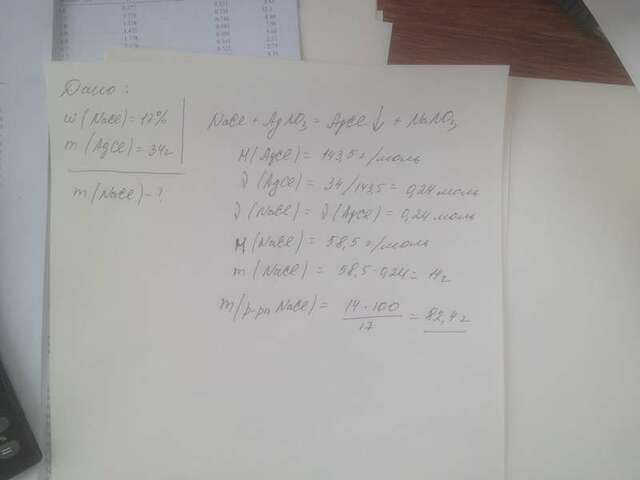 Дано:
w(NaCl)=17%
m(AgCl)=34г
m(NaCl)-?
NaCl + AgNO3 = AgCl↓ + NaNO3
M(AgCl) = 143,5 г/моль
ν(AgCl) = 34/143,5 = 0,24 моль
ν(NaCl) = ν(AgCl) = 0,24 моль
M(NaCl) = 58,5 г/моль
m(NaCl) = 58,5·0,24 = 14г
m(р-ра NaCl) = 14·100 / 17 = 82,4г